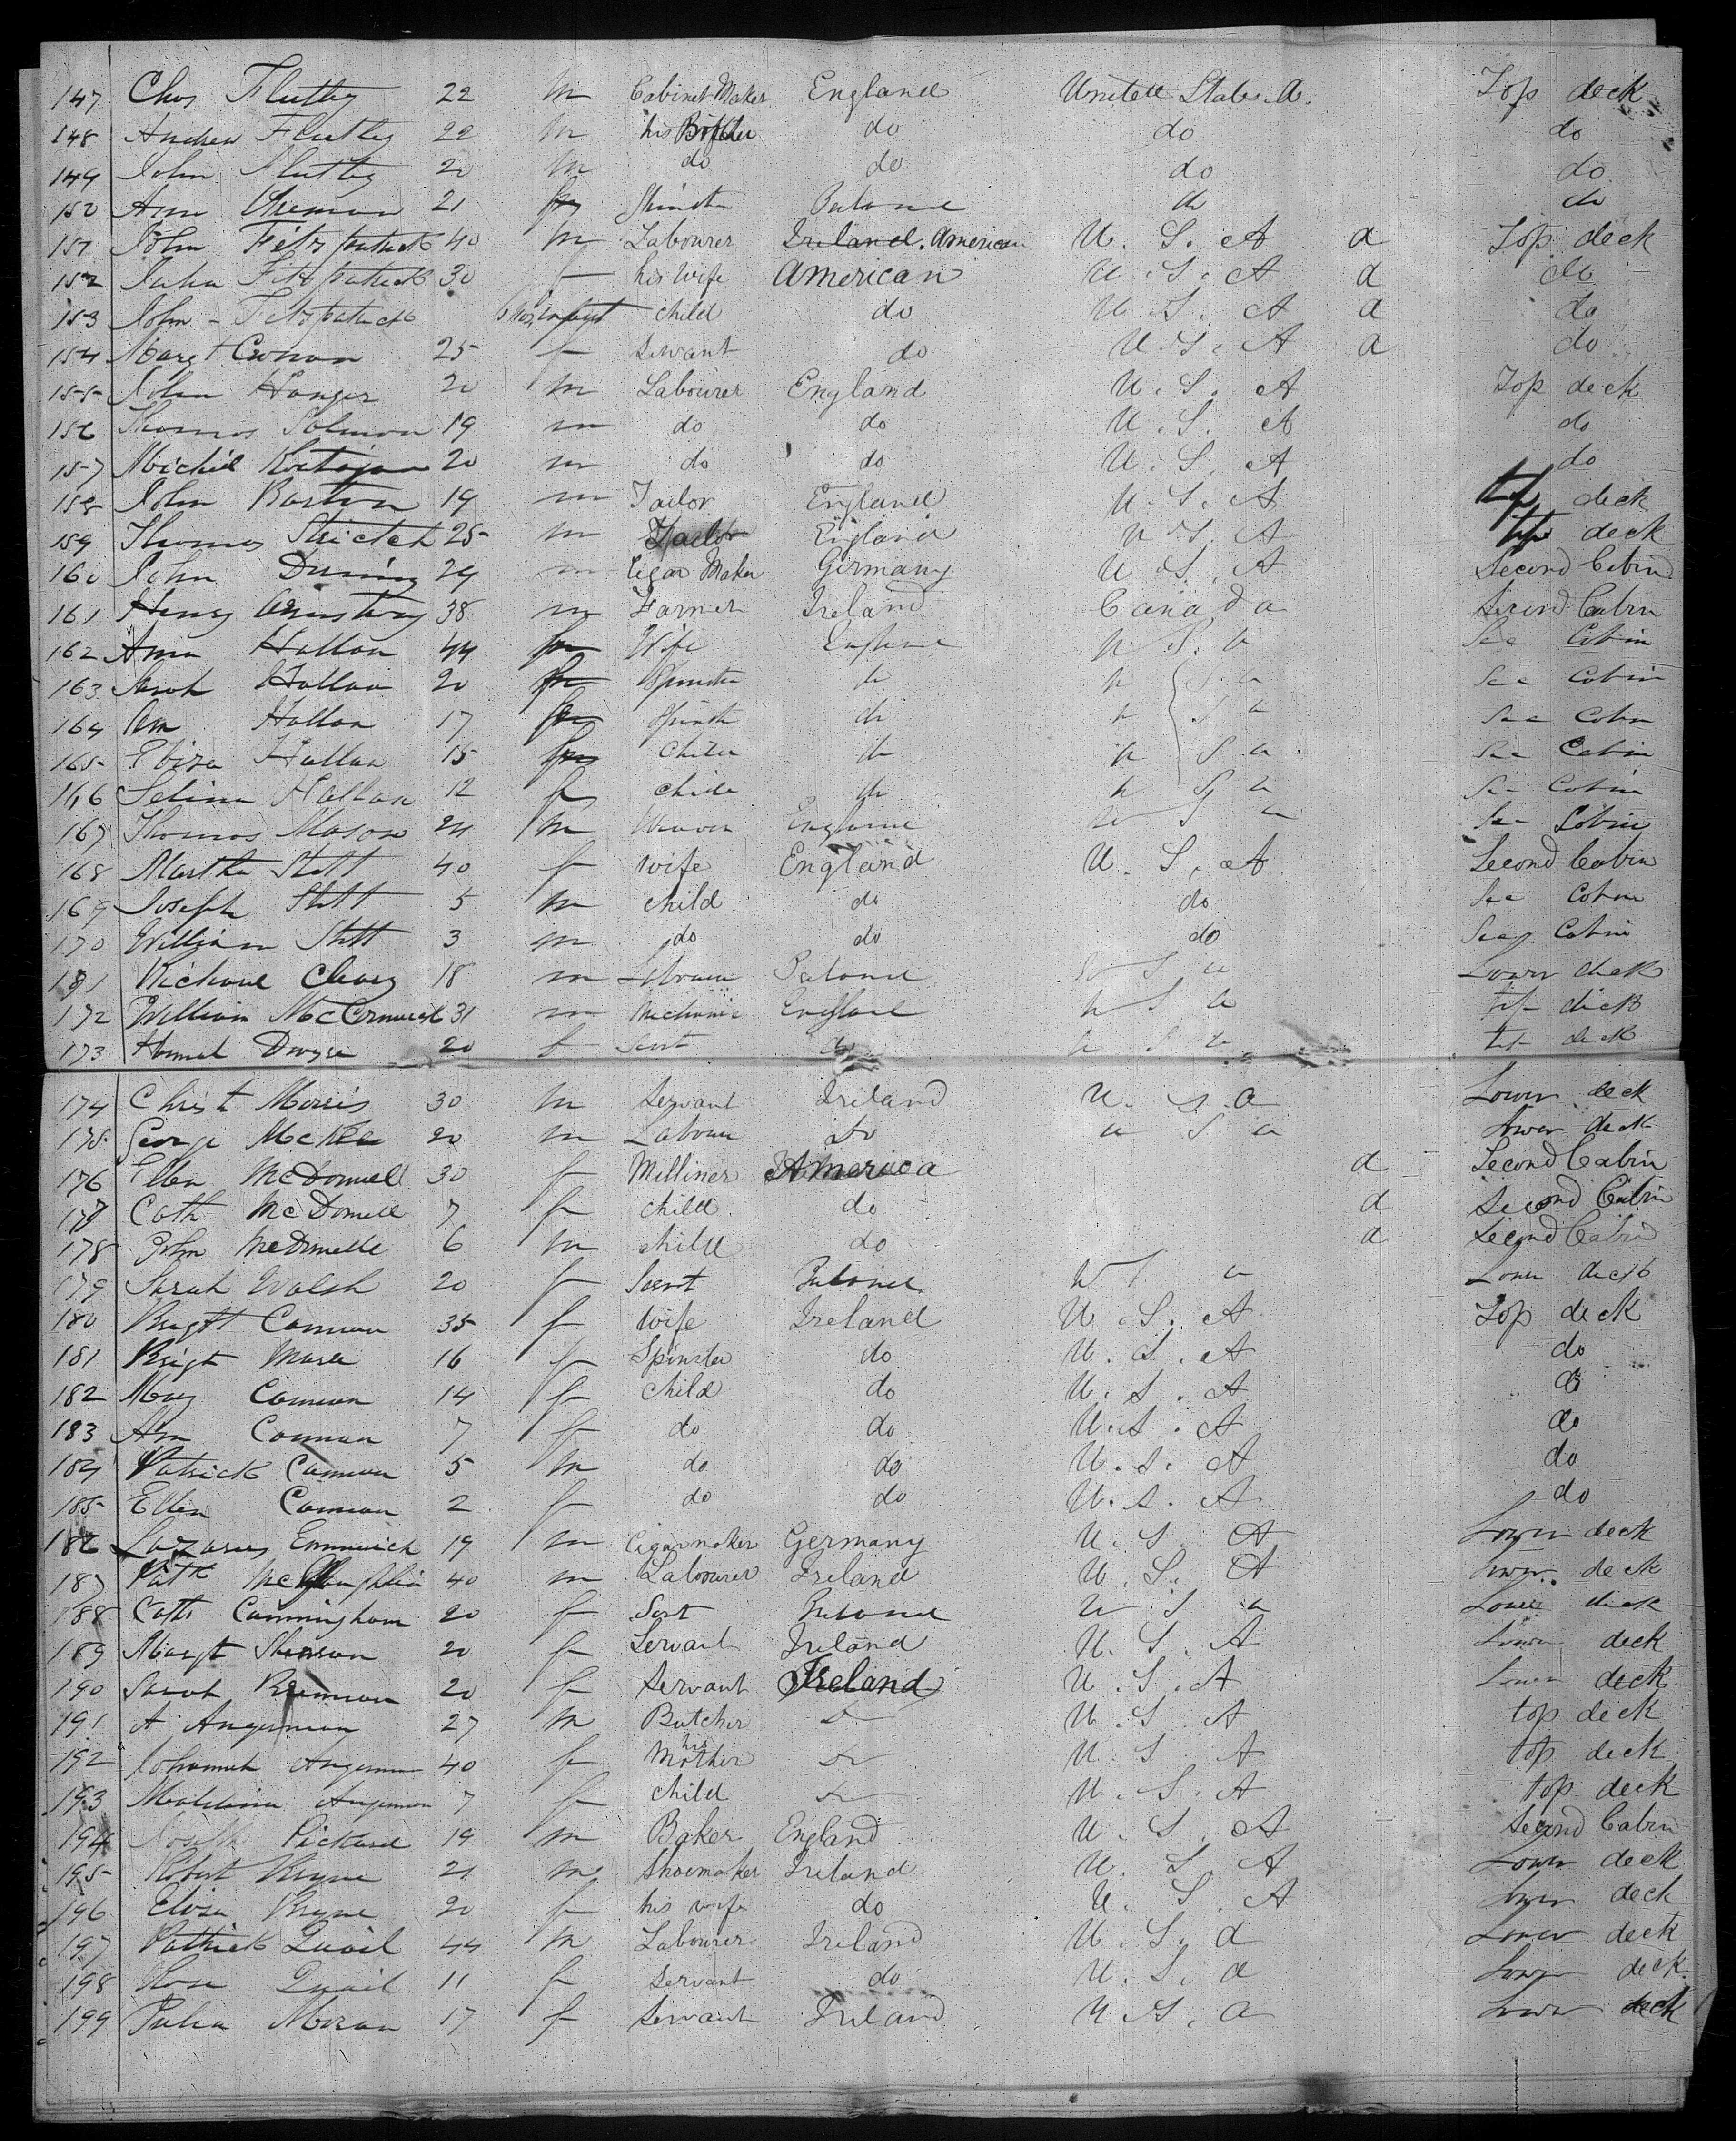 147 Chas Fluttey 22 m Cabinet Maker England United States A. Top deck
148 Andrew Fluttey 22 m his Brother do do do
149 John Fluttey 20 m do do do do
150 Ann 21 Spinster Ireland do do
151 John Fitzpatrick 40 m Labourer Ireland. American U. S. A a Top deck
152 Julia Fitzpatrick 30 f his wife American U. S. A a do
153 John Fitzpatrick infant child do U. S. A a do
154 Margt Cronan 25 f servant do U. S. A a do
155 John Hanger 20 m Labourer England U. S. A Top deck
156 Thomas Solmon 19 m do do U. S. A do
157 Michiel 20 m do do U. S. A do
158 John Barton 19 m Tailor England U. S. A top deck
159 Thomas Strictch 25 m Tailor England U S. A top deck
160 John Duning 29 m Cigar Maker Germany U. S. A Second Cabin
161 Henry Armstrong 38 m Farmer Ireland Canada Second Cabin
162 Ann Hallan 44 Wife England U. S. a Sec Cabin
163 Sarah Hallan 20 Spinster do U S. a Sec Cabin
164 Ann Hallan 17 Spinstr do U S a Sec Cabin
165 Eliza Hallan 15 child do U S a Sec Cabin
166 Selina Hallan 12 f child do U S a Sec Cabin
167 Thomas Mason 24 m Weaver England U S a Sec Cabin
168 Martha Stott 40 f wife England U. S. A Second Cabin
169 Joseph Stott 5 m child do do Sec Cabin
170 William Stott 3 m do do do Sec Cabin
171 Michael Cleary 18 m Labourer Ireland U S a Lower deck
172 William McCormick 31 m Mechanic England U S a top deck
173 Hannah Dwyer 20 f Servt do U S a top deck
174 Christ Morris 30 m servant Ireland U. S. a Lower deck
175 George McKee 20 m Labour Do U S a Lower deck
176 Ellen McDonnell 30 f Milliner America a Second Cabin
177 Cath McDonnell 7 f child do a Second Cabin
178 John McDonnell 6 m child do a Second Cabin
179 Sarah Walsh 20 f Servt Ireland U S a Lower deck
180 Brigtt Cannon 35 f wife Ireland U. S. A Top deck
181 Brigt 16 f Spinster do U. S. A do
182 Mary Cannon 14 f child do U. S. A do
183 Ann Cannon 7 f do do U. S. A do
184 Patrick Cannon 5 m do do U. S. A do
185 Ellen Cannon 2 f do do U. S. A do
186 Lazarus Emmerich 19 m Cigarmaker Germany U. S. A Lower deck
187 Patk McGloughlin 40 m Labourer Ireland U. S. A Lower deck
188 Cath Cunningham 20 f Sert Ireland U S a Lower deck
189 Margt 20 f Servant Ireland U. S. A Lower deck
190 Sarah Brennan 20 f Servant Ireland U. S. A Lower deck
191 A Angerman 27 m Butcher Do U. S. A top deck
192 Johannah Angerman 40 f his Mother Do U. S. A top deck
193 Angerman 7 f child Do U. S. A top deck
194 Joseph Pickard 19 m Baker England U. S. A Second Cabin
195 Robert Bryne 21 m Shoemaker Ireland U. S. A Lower deck
196 Eliza Bryne 20 f his wife do U. S. A Lower deck
197 Pattrick Quail 44 m Labourer Ireland U. S. a Lower deck
198 Rose Quail 11 f servant do U. S. a Lower deck
199 Julia Moran 17 f servant Ireland U S. a Lower deck